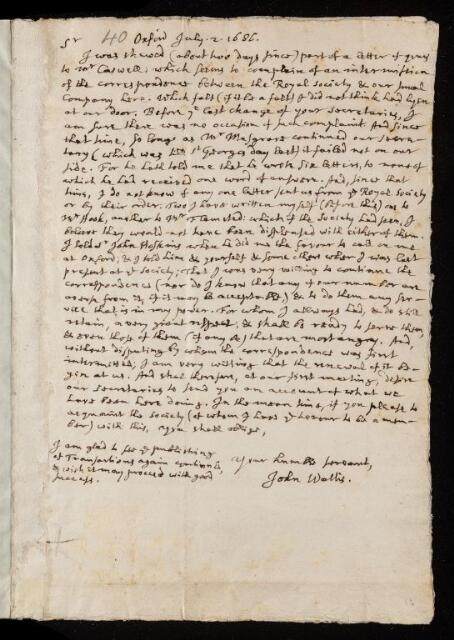 40 Oxford July. 2. 1686.
Sr
I was shewed (about two days since) part of a letter of yours
to Mr Caswell; which seems to complain of an intermission
of the correspondence between the Royal Society & our small
Company here. Which fault (if it be a fault) I did not think had layn
at our door. Before ye last change of your Secretaries, I
am sure there was no occasion of such complaint. And, since
that time, so long as Mr Musgrave continued our Secre-
tary (which was till St Georges day last) it failed not on our
side. For he hath told me that he wrote six letters, to none of
which he had received one word of answere. And, since that
time, I do not know of any one letter sent us from ye Royal Society
or by their order. Two I have written myself (before this) one to
Mr Hook, another to Mr Flamsted: which if the Society had seen, I
believe they would not have been displeased with either of them.
I told Sr John Hoskins when he did me the favour to call on me
at Oxford; & I told him & yourself & some others when I was last
present at ye Society; That I was very willing to continue the
correspondence (nor do I know that any of our number are
averse from it, if it may be acceptable,) & to do them any ser-
vice that is in my power. For whom I always had, & do still
retain, a very great respect, & shall be ready to serve them,
& even those of them (if any be) that are most angry. And,
without disputing by whom the correspondence was first
intermitted; I am very willing that the renewal of it be-
gin at us. And shal therefore, at our first meeting, desire
our Secretaries to send you an account of what we
have been here doing. In the mean time, if you please to
acquaint the Society (of whom I have ye honour to be a mem-
ber) with this, you shall oblige,
Your humble servant,
John Wallis.
I am glad to see ye publishing
of Transactions again continued,
& wish it may proceed with good
success.